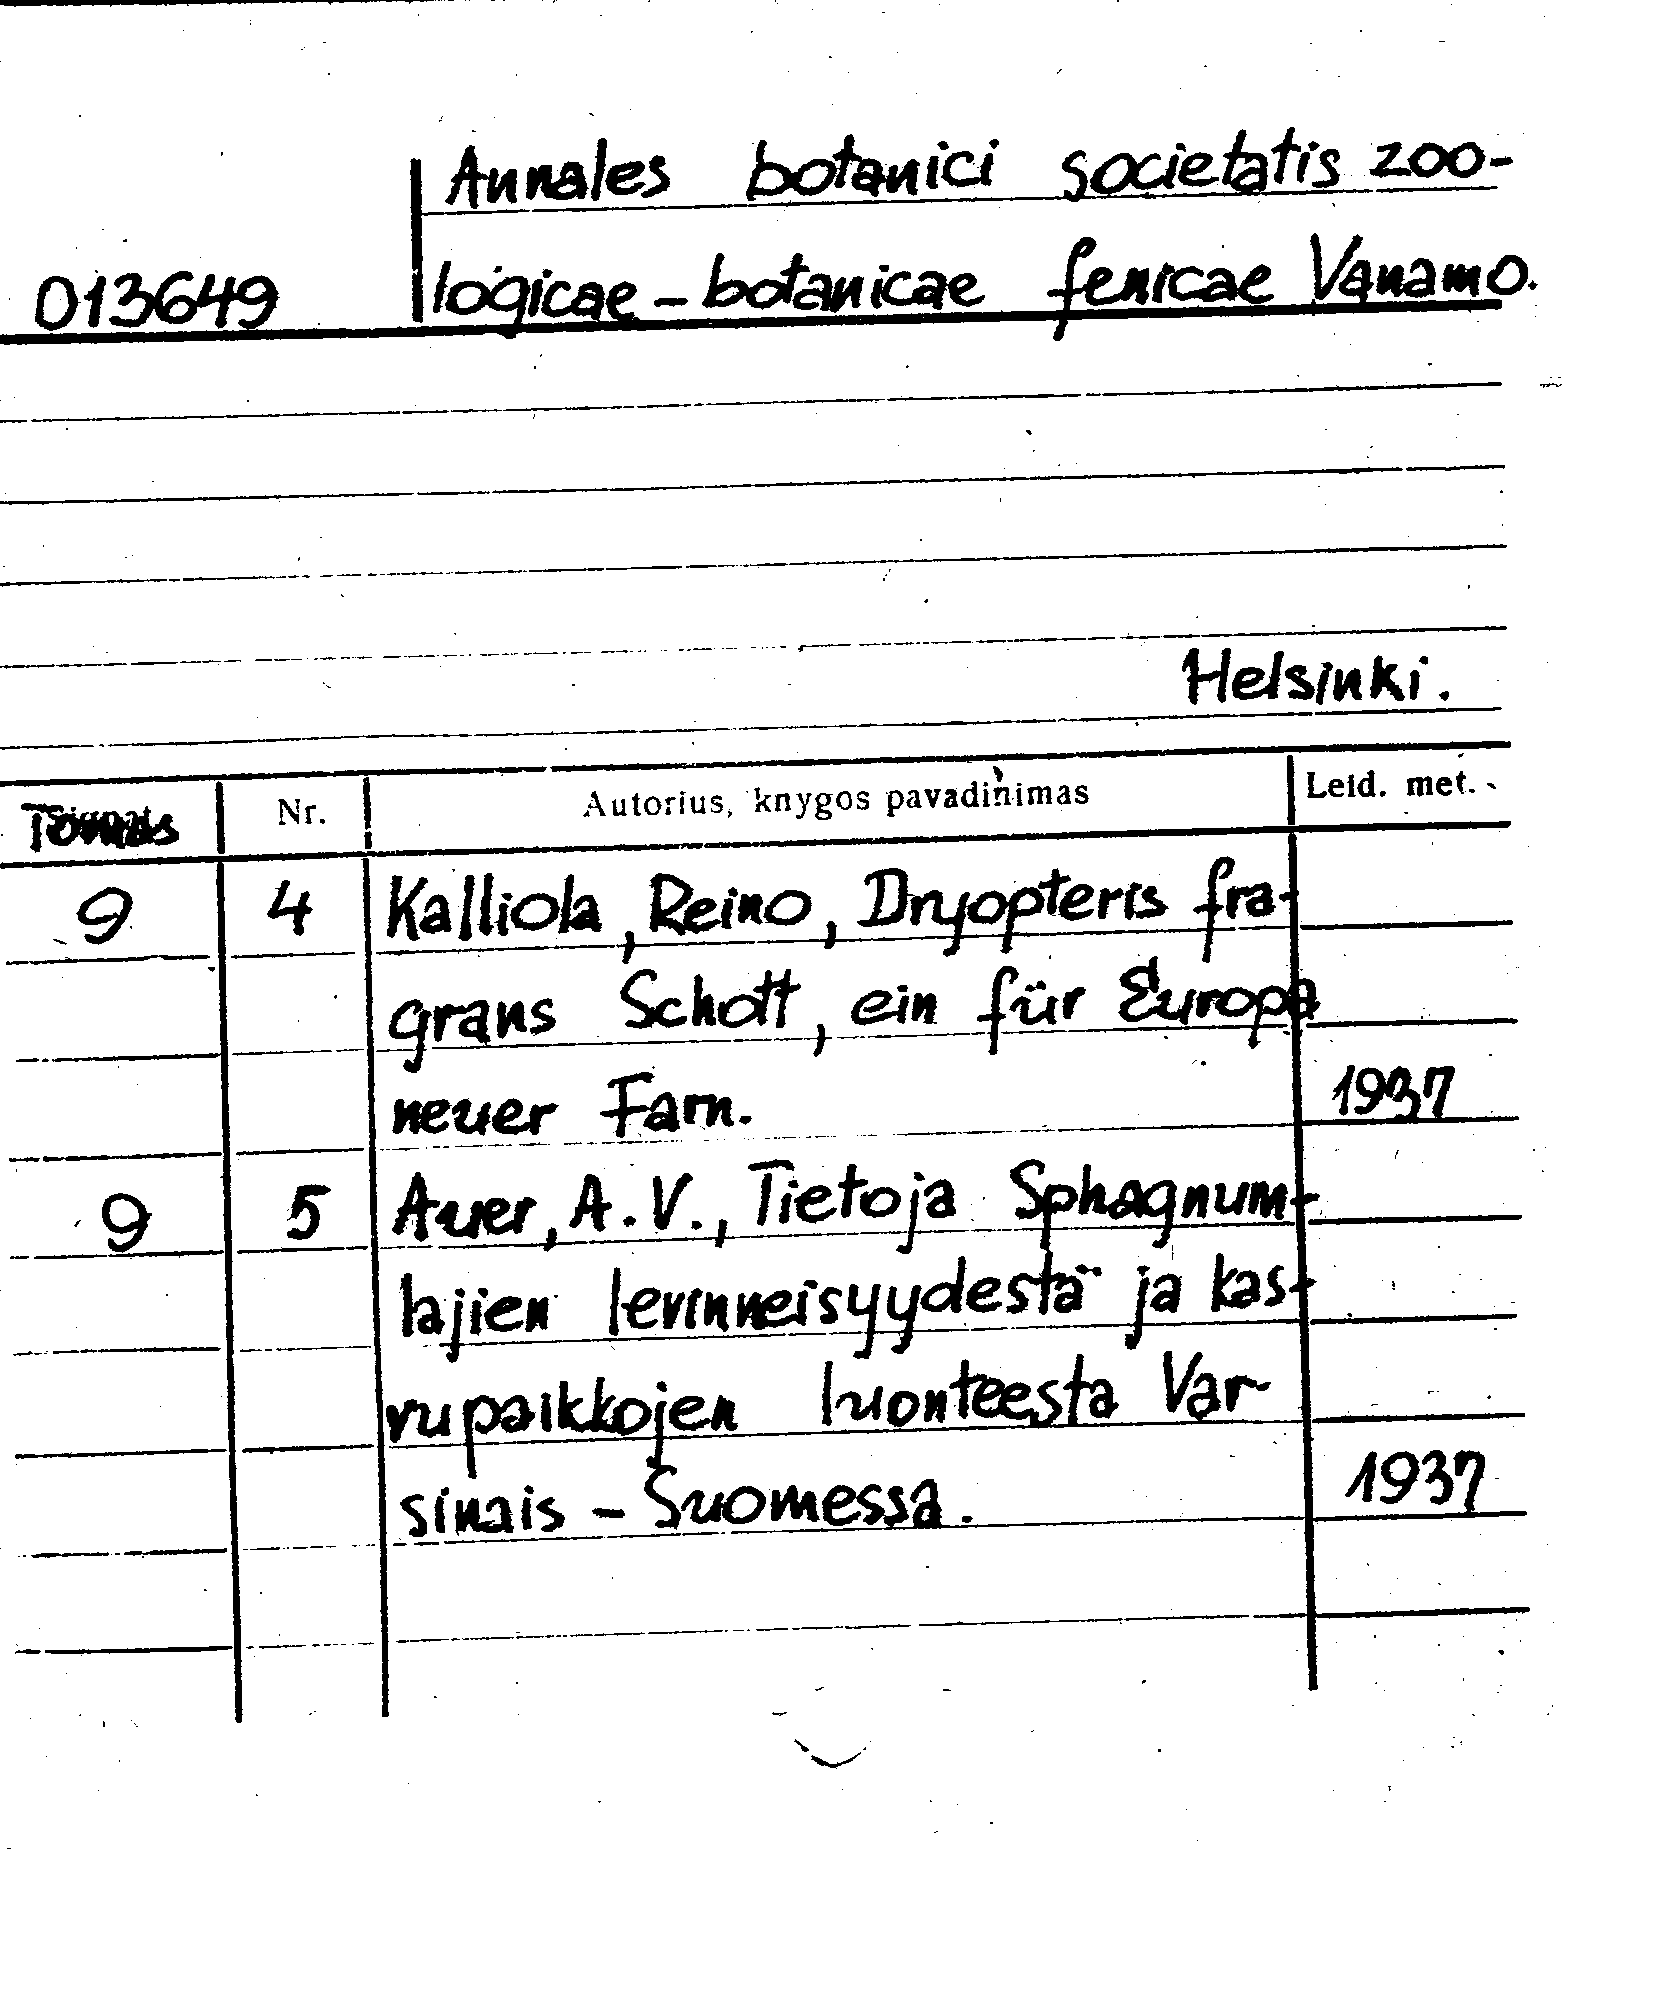 Annales botanici societatis zoo-
013649 logicae - botanicae fenicae Vanamo.
Helsinki.
Tomas Nr. Autorius, knygos pavadinimas Leid. met.
9 4 Kalliola, Reino, Dryopteris fra-
grans Schott, ein für Europa
neuer Farn. 1937
9 5 Auer, A. V., Tietoja Sphagnum-
lajien levinneisyydestä ja kas-
vupaikkojen luonteesta Var-
sinais - Suomessa. 1937